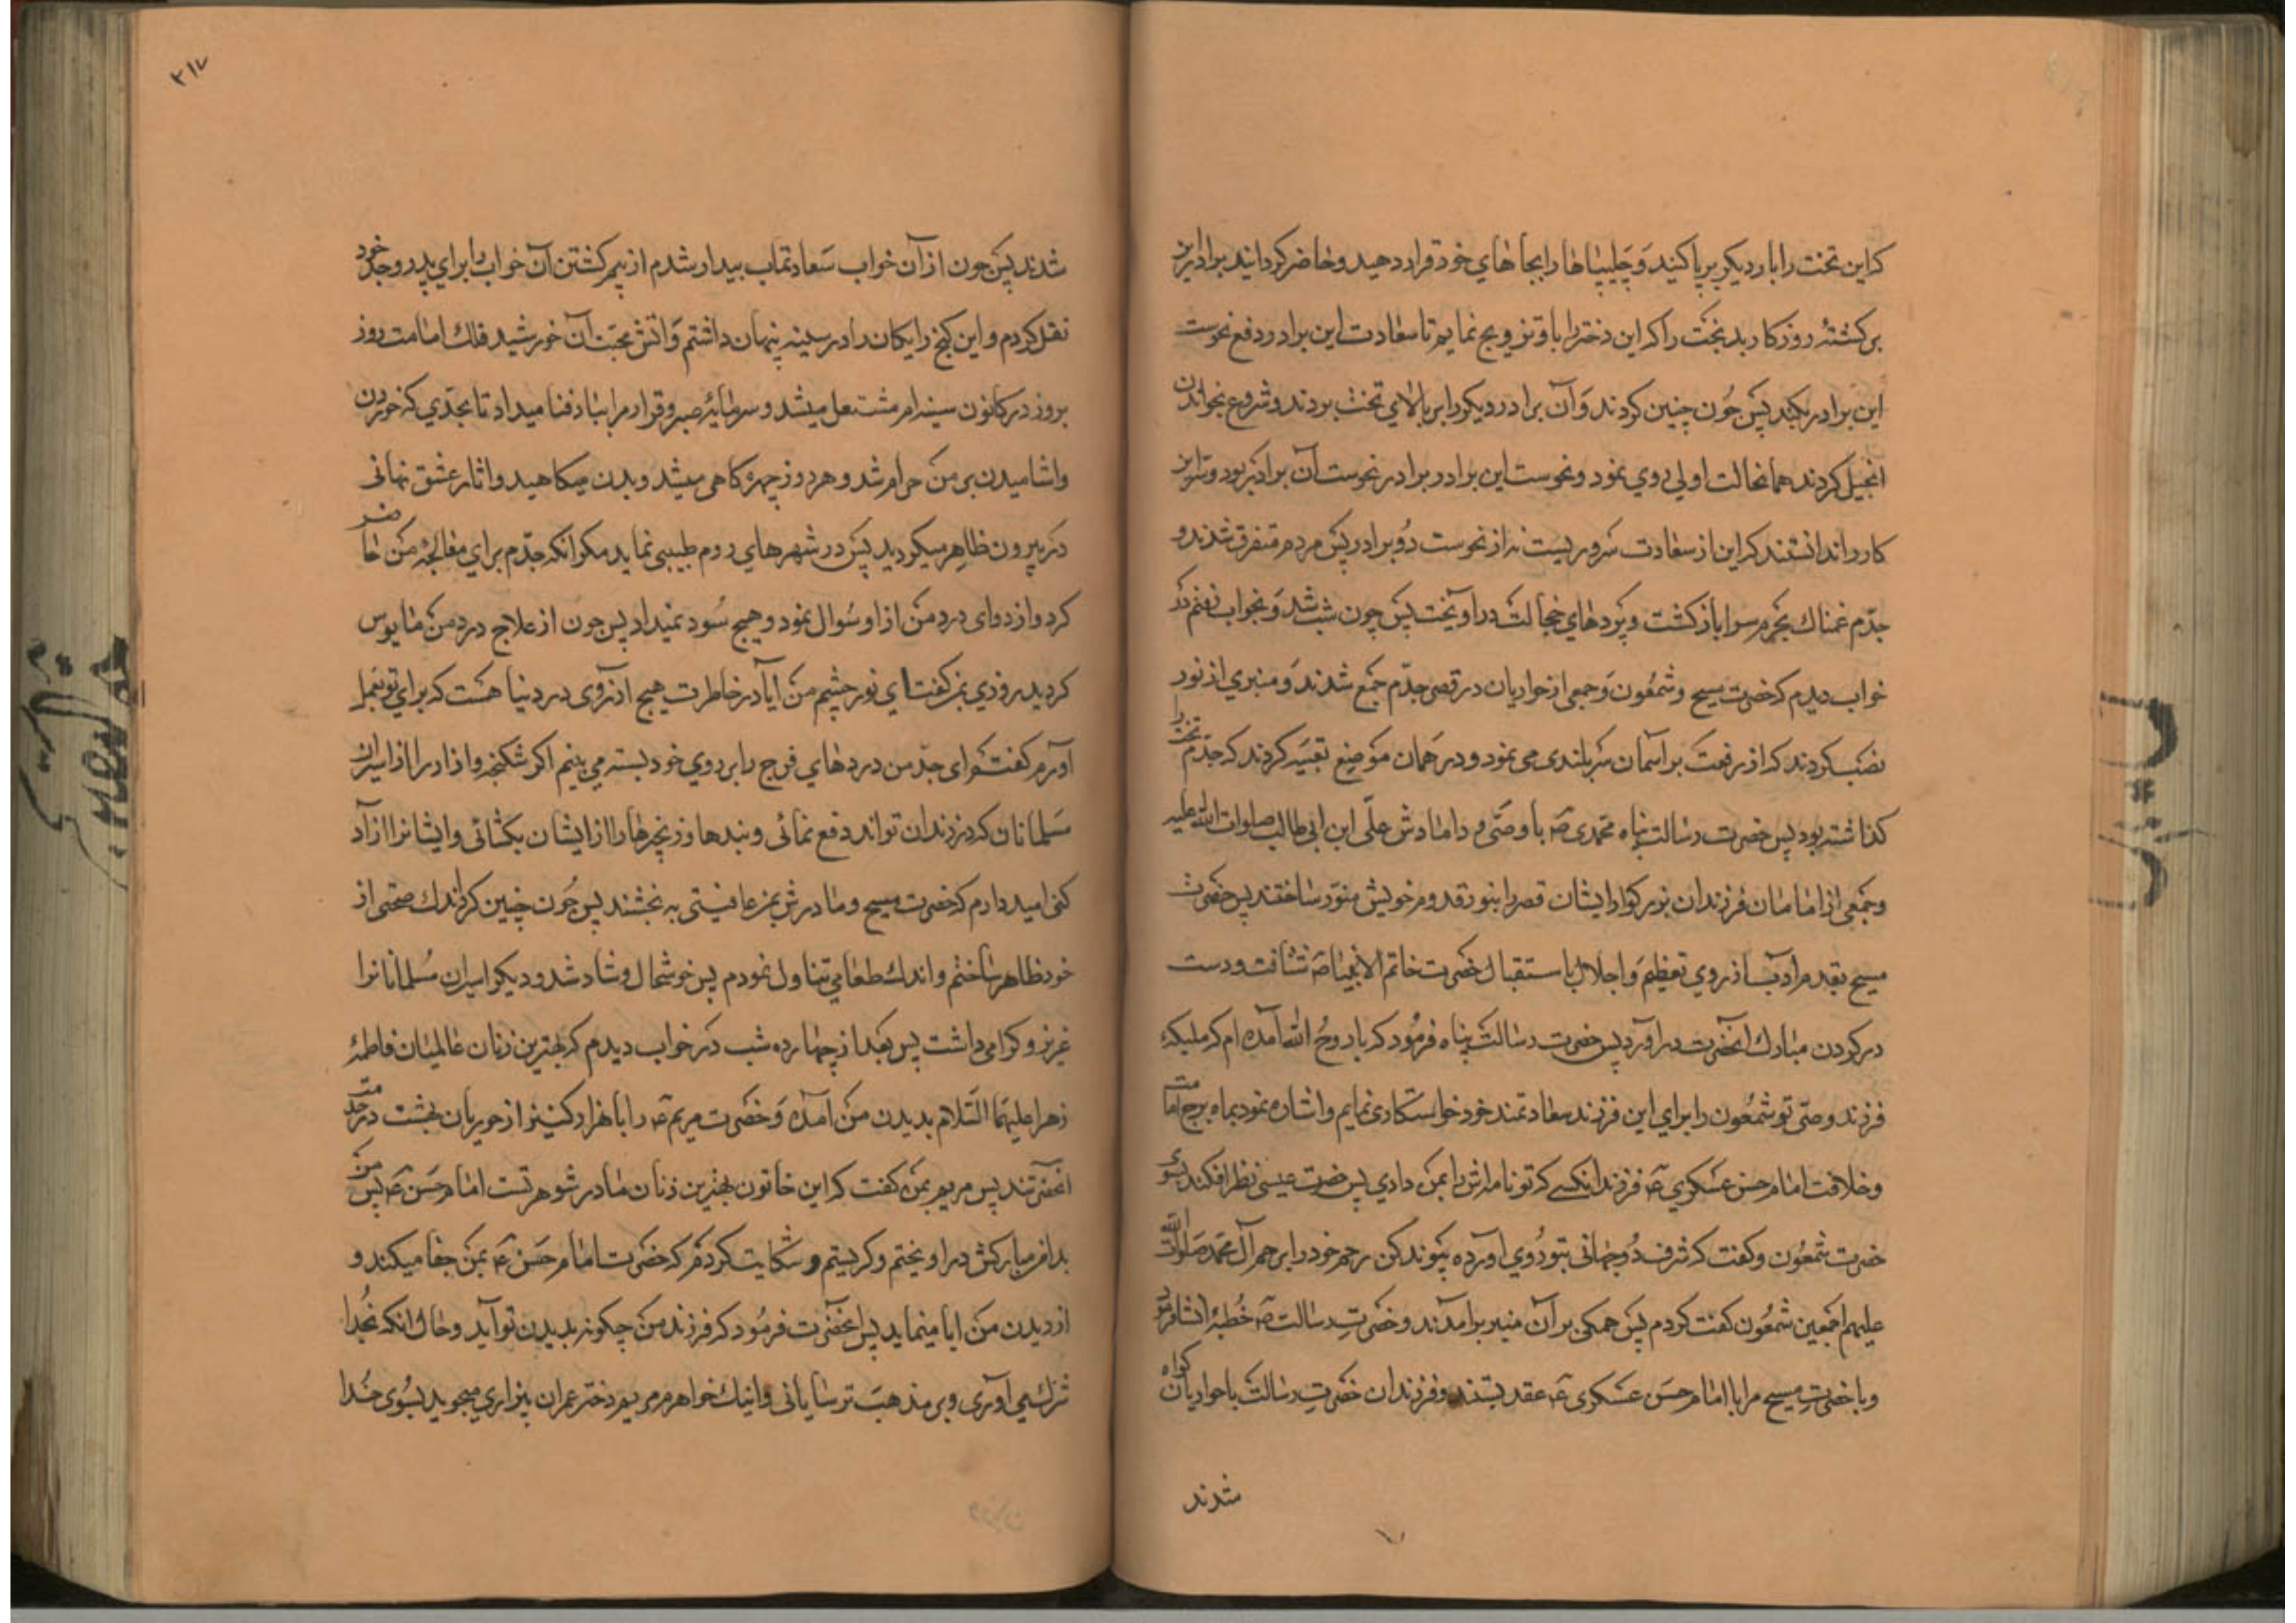 که این تخت را بار دیگر برپا کنید و چلیپاها را بجاهای خود قرار دهید و حاضر گردانید برادر این
برکشتهٔ روزکار بدبخت را که این دختر را باو تزویج نمایم تا سعادت این برادر دفع نحوست
این برادر بکند پس چون چنین کردند و آن برادر دیکر را بر بالای تخت بردند و شروع بخواندن
انجیل کردند همانحالت اولی روی نمود و نحوست این برادر برادر نحوست آن برادر بود و سر این
کار را ندانستند که این از سعادت سروریست نه از نحوست دو برادر پس مردم متفرق شدند و
جدّم غمناک بحرم سرا بازکشت و پردهای خجالت در آویخت پس چون شب شد و بخواب رفتم در
خواب دیدم که حضرت مسیح و شمعون و جمعی از حواریان در قصر جدّم جمع شدند و منبری از نور
نصب کردند که از رفعت بر آسمان سربلندی می نمود و در همان موضع تعبیه کردند که جدّم تخت را
کذاشته بود پس حضرت رسالت پناه محمدی ص با وصی و دامادش علّی ابن ابی طالب صلوات الله علیه
و جمعی از امامان فرزندان بزرکوار ایشان قصر را بنور قدوم خویش منوّر ساختند پس حضرت
مسیح بقدم ادب از روی تعظیم و اجلال باستقبال حضرت خاتم الانبیا ص شتافت و دست
در کردن مبارک انحضرت در اورد پس حضرت رسالت پناه فرمود که یا روح الله آمده ام که ملیکهٔ
فرزند وصّی تو شمعون را برای این فرزند سعادتمند خود خواستکاری نمایم و اشاره نمود بماه برج امامت
و خلافت امام حسن عسکری ع فرزند انکسے که تو نامه اش را بمن دادی پس حضرت عیسی نظر افکند بسوی
حضرت شمعون و کفت که شرف دو جهانی بتو روی اورده پیوند کن رحم خود را برحم آل محمد صلوات الله
علیهم اجمعین شمعون کفت کردم پس همکی بر آن منبر برامدند و حضرت رسالت ص خطبهٔ انشا فرمود
و با حضرت مسیح مرا با امام حسن عسکری ع عقد بستند و فرزندان حضرت رسالت با حواریان کواه
شدند
۳۱۷
شدند پس چون از آن خواب سعادتماب بیدار شدم از بیم کشتن آن خواب را برای پدر و جد خود
نقل نکردم و این کنج رایکان را در سینه پنهان داشتم و اتش محبت آن خورشید فلک امامت روز
بروز در کانون سینه ام مشتعل میشد و سرمایهٔ صبر و قرار مرا بباد فنا میداد تا بحدّی که خوردن
و اشامیدن بر من حرام شد و هر روز چهره کاهی میشد و بدن میکاهید و اثار عشق نهانی
در بیرون ظاهر میکردید پس در شهرهای روم طبیبی نماید مکر انکه جدّم برای معالجهٔ من حاضر
کرد و از دوای درد من از او سوال نمود و هیچ سود نمیداد پس چون از علاج درد من مایوس
کردید روزی بمن کفت ای نور چشم من آیا در خاطرت هیچ ارزوی در دنیا هست که برای تو بعمل
آورم کفتم ای جدّ من درهای فرج را بر روی خود بسته می بینم اکر شکنجه و ازار را از اسیران
مسلمانان که در زندان تواند دفع نمائی و بندها و زنجیرها را از ایشان بکشائی و ایشانرا آزاد
کنی امید دارم که حضرت مسیح و مادرش بمن عافیتی به بخشند پس چون چنین کرد اندک صحتی از
خود ظاهر ساختم و اندک طعامی تناول نمودم پس خوشحال و شاد شد و دیکر اسیران مسلمانانرا
عزیز و کرامی داشت پس بعد از چهارده شب در خواب دیدم که بهترین زنان عالمیان فاطمهٔ
زهرا علیهما السّلام بدیدن من آمده و حضرت مریم ع را با هزار کنیز از حوریان بهشت در خدمت
انحضرتند پس مریم بمن کفت که این خاتون بهترین زنان مادر شوهر تست امام حسن ع پس من
بدامن مبارکش در اویختم و کریستم و شکایت کردم که حضرت امام حسن ع بمن جفا میکند و
از دیدن من ابا مینماید پس انحضرت فرمود که فرزند من چکونه بدیدن تو آید و حال انکه بخدا
شرک می آوری و بر مذهب ترسایانی و اینک خواهرم مریم دختر عمران بیزاری میجوید بسوی خدا